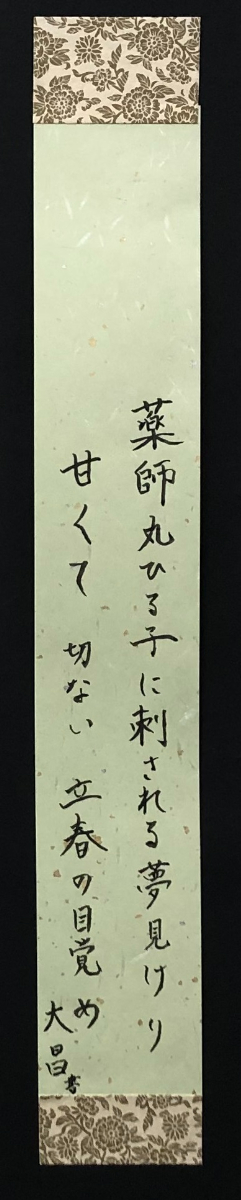 薬師丸ひる子に刺される夢見けり
甘くて 切ない 立春の目覚め
大昌書